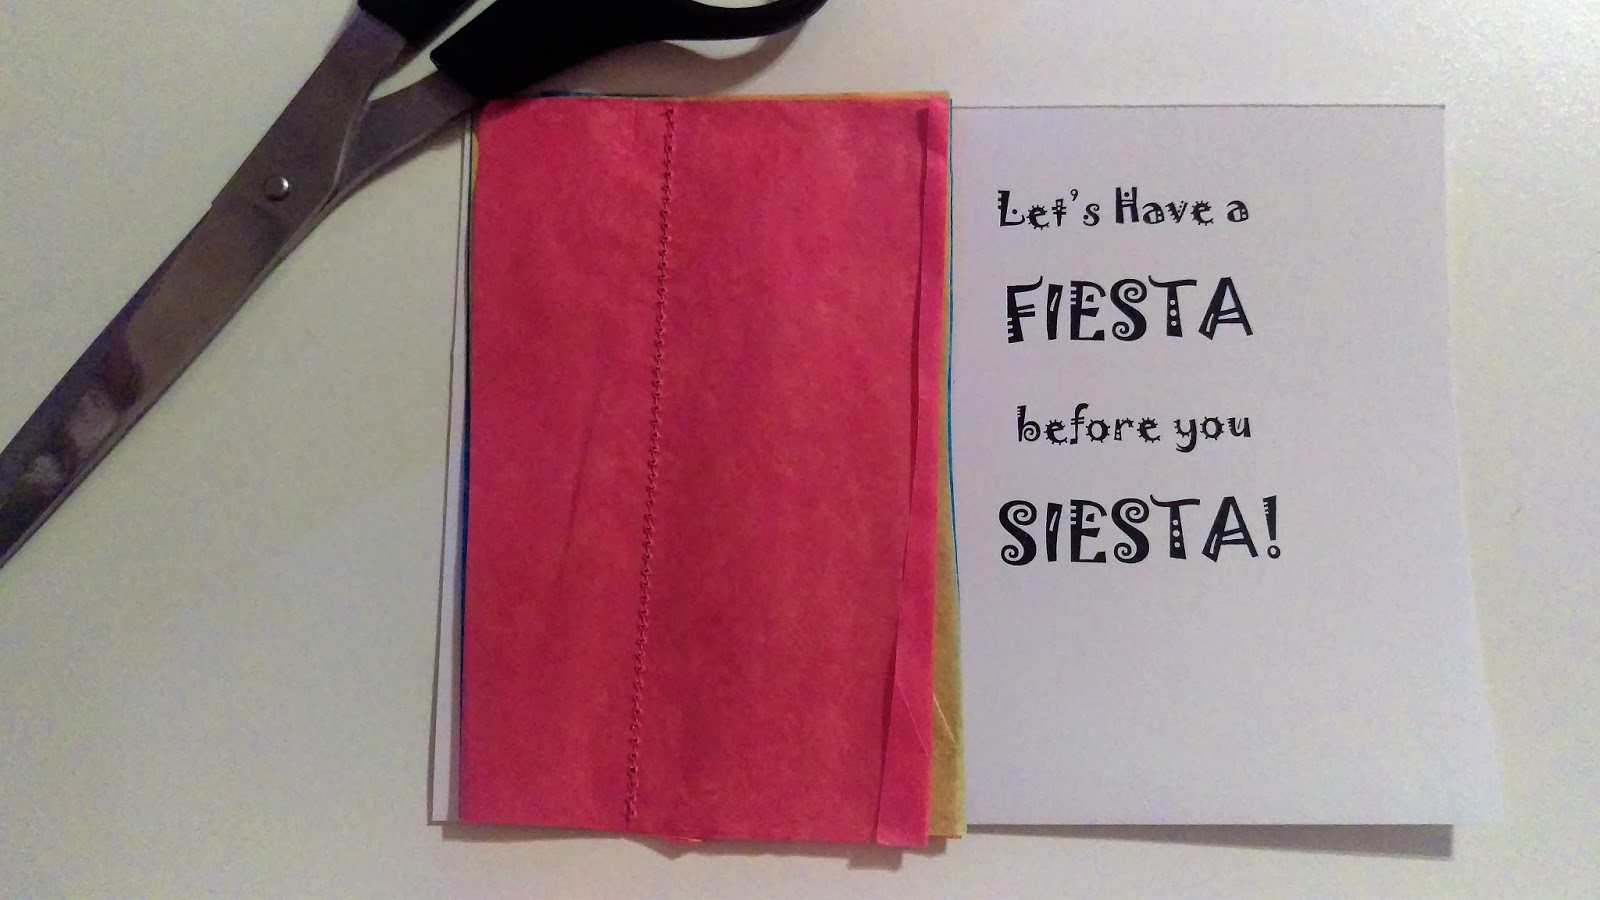 Let's Have a
FIESTA
before you
SIESTA!